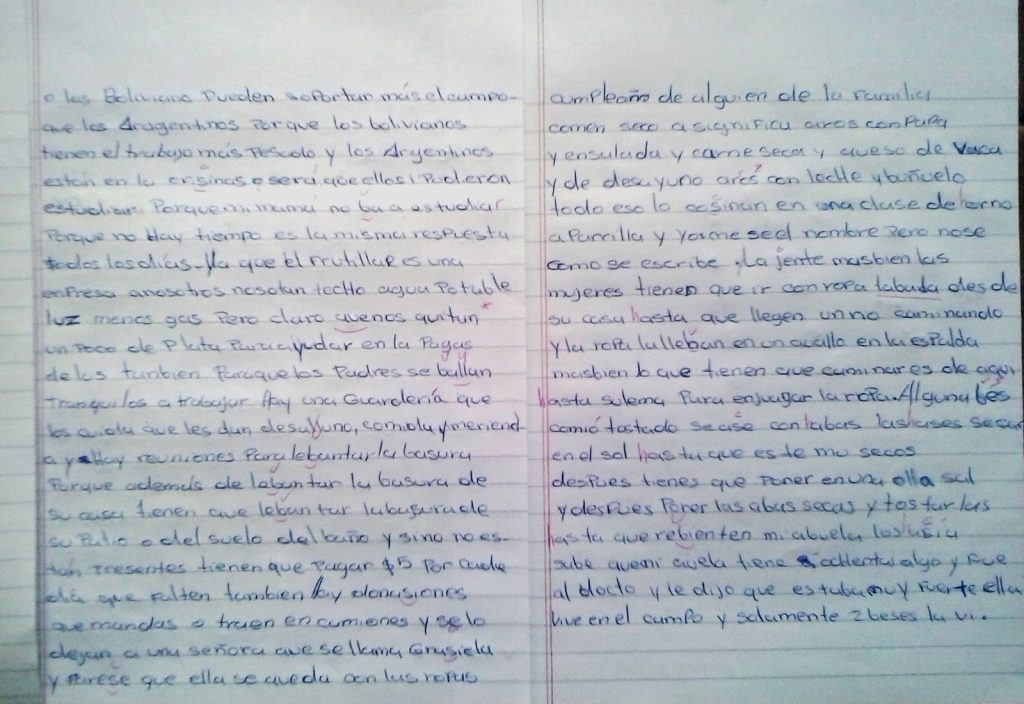 o las Boliviana Pueden soportar más el campo-
que los Arugentinos Porque los bolivianos
tienen el trabajo más Pesado y los Argentinos
están en la ofisinas o será que ellos si Pudieron
estudiar. Porque mi mamá no ba a estudiar
Porque no Hay tiempo es la misma respuesta
todos los días. Ya que el Frutillar es una
enPresa anosotros nos dan techo agua Potable
luz menos gas Pero claro quenos quitan
un Poco de Plata Para ayudar en la Pagas
de las tanbien Paraque los Padres se ballan
Tranquilos a trabajar Hay una Guardería que
los cuida que les dan desalluno, comida y meriend-
a y Hay reuniones Para lebantar la basura
Porque además de lebantar la basura de
su casa tienen que lebantar la basura de
su Patio o del suelo del baño y sino no es-
tán Presentes tienen que Pagar $5 Por cada
día que Falten tambien Hay donasiones
que mandas o traen en camiones y se lo
dejan a una señora que se llama Grasiela
y Parese que ella se queda con las ropas
cumPleaño de alguien de la Familia
comen seco a significa aros con PaPa
y ensalada y carne seca y queso de vaca
y de desayuno arós con leche y buñuelo
todo eso lo cosinan en una clase de orno
a Parrilla y yo me se el nombre Pero no se
como se escribe. La jente masbien las
mujeres tienen que ir con ropa labada desde
su casa hasta que llegen un rio caminando
y la roPa la lleban en un auallo en la esPalda
masbien lo que tienen que caminar es de aqui
hasta sulema Para enjuagar la roPa. Alguna bes
comió tostado se ase con abas las ases secar
en el sol hasta que este mu secos
desPues tienes que Poner en una olla sal
y desPues Poner las abas secas y tostar las
hasta que rebienten mi abuela los asia
sabe que mi avela tiene ochenta i algo y Fue
al docto y le dijo que estaba muy Fuerte ella
bive en el campo y solamente 2 beses la vi.